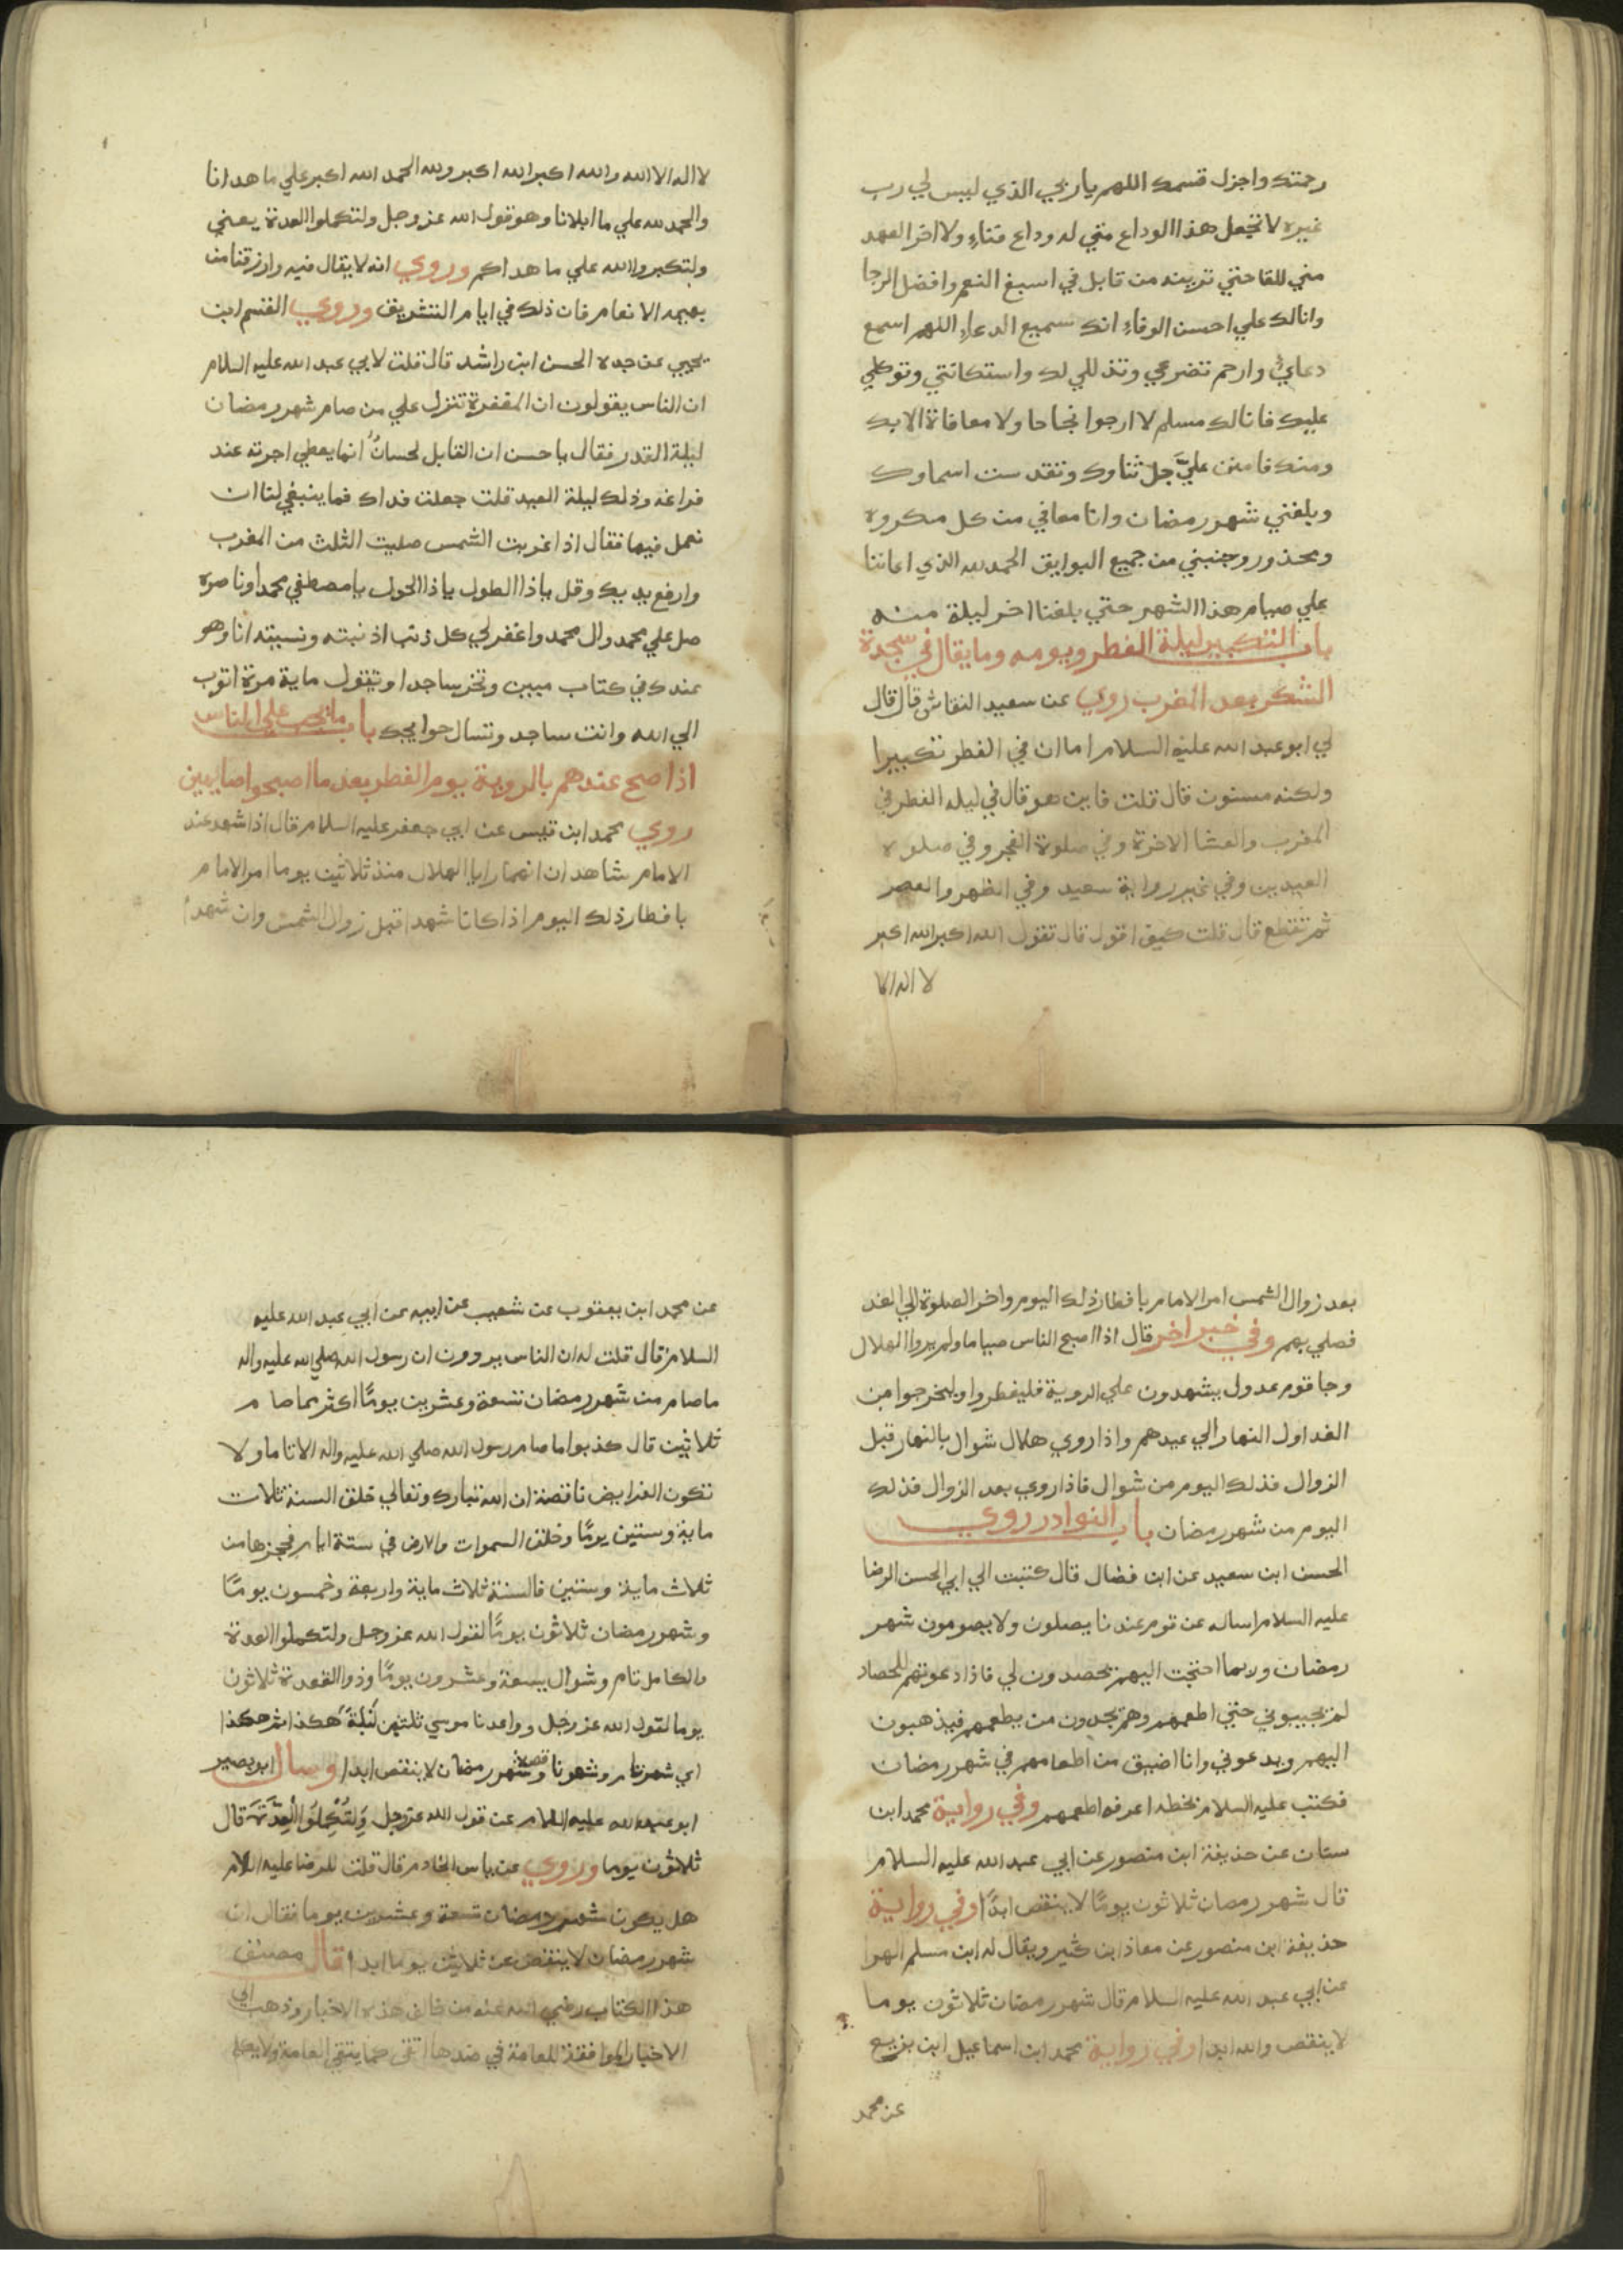 رحمتك واجزل قسمك اللهم يا ربي الذي ليس لي رب
غيره لا تجعل هذا الوداع مني له وداع فناء ولا اخر العهد
مني للقا حتي ترينه من قابل في اسبغ النعم وافضل الرجا
وانا لك علي احسن الوفاء انك سميع الدعاء اللهم اسمع
دعاي وارحم تضرعي وتذللي لك واستكانتي وتوكلي
عليك فانا لك مسلم لا ارجوا نجاحا ولا معافاة الا بك
ومنك فامنن عليَّ جل ثناوك وتقدست اسماوك
وبلغني شهر رمضان وانا معافي من كل مكروه
ومحذور وجنبني من جميع البوايق الحمد لله الذي اعاننا
علي صيام هذا الشهر حتي بلغنا اخر ليلة منه
باب التكبير ليلة الفطر ويومه وما يقال في سجدة
الشكر بعد المغرب روي عن سعيد النقاش قال قال
لي ابو عبد الله عليه السلام اما ان في الفطر تكبيرا
ولكنه مسنون قال قلت فاين هو قال في ليله الفطر في
المغرب والعشا الاخرة وفي صلوة الفجر وفي صلوة
العيدين وفي غير رواية سعيد وفي الظهر والعصر
ثم تقطع قال قلت كيف اقول قال تقول الله اكبر الله اكبر
لا اله الا
لا اله الا الله والله اكبر الله اكبر ولله الحمد الله اكبر علي ما هدانا
والحمد لله علي ما ابلانا وهو قول الله عز وجل ولتكملوا العدة يعني
ولتكبروا الله علي ما هداكم وروي انه لا يقال فيه وارزقنا من
بهيمه الانعام فان ذلك في ايام التشريق وروي القسم ابن
يحيي عن جده الحسن ابن راشد قال قلت لابي عبد الله عليه السلام
ان الناس يقولون ان المغفرة تنزل علي من صام شهر رمضان
ليلة القدر فقال يا حسن ان القابل لحسان انما يعطي اجرته عند
فراغه وذلك ليلة العيد قلت جعلت فداك فما ينبغي لنا ان
نعمل فيها فقال اذا غربت الشمس صليت الثلث من المغرب
وارفع يديك وقل يا ذا الطول يا ذا الحول يا مصطفي محمدا وناصره
صل علي محمد وال محمد واغفر لي كل ذنب اذنبته ونسيته انا وهو
عندك في كتاب مبين وتخر ساجدا وتقول ماية مرة اتوب
الي الله وانت ساجد وتسال حوايجك باب ما يجب علي الناس
اذا صح عندهم بالروية يوم الفطر بعد ما اصبحوا صايمين
روي محمد ابن قيس عن ابي جعفر عليه السلام قال اذا شهد عند
الامام شاهدان انهما رايا الهلال منذ ثلاثين يوما امر الامام
بافطار ذلك اليوم اذا كانا شهدا قبل زوال الشمس وان شهدا
بعد زوال الشمس امر الامام بافطار ذلك اليوم واخر الصلوة الي الغد
فصلي بهم وفي خبر اخر قال اذا اصبح الناس صياما ولم يروا الهلال
وجا قوم عدول يشهدون علي الروية فليفطروا وليخرجوا من
الغد اول النهار الي عيدهم واذا روي هلال شوال بالنهار قبل
الزوال فذلك اليوم من شوال فاذا روي بعد الزوال فذلك
اليوم من شهر رمضان باب النوادر روي
الحسن ابن سعيد عن ابن فضال قال كتبت الي ابي الحسن الرضا
عليه السلام اساله عن قوم عندنا يصلون ولا يصومون شهر
رمضان وربما احتجت اليهم يحصدون لي فاذا دعوتهم للحصاد
لم يجيبوني حتي اطعمهم وهم يجدون من يطعمهم فيذهبون
اليهم ويدعوني وانا اضيق من اطعامهم في شهر رمضان
فكتب عليه السلام بخطه اعرفه اطعمهم وفي رواية محمد ابن
سنان عن حذيفة ابن منصور عن ابي عبد الله عليه السلام
قال شهر رمضان ثلاثون يومًا لا ينقص ابدًا وفي رواية
حذيفة ابن منصور عن معاذ ابن كثير ويقال له ابن مسلم الهرا
عن ابي عبد الله عليه السلام قال شهر رمضان ثلاثون يوما
لا ينقص والله ابدا وفي رواية محمد ابن اسماعيل ابن بزيع
عن محمد
عن محمد ابن يعقوب عن شعيب عن ابيه عن ابي عبد الله عليه
السلام قال قلت له ان الناس يروون ان رسول الله صلي الله عليه واله
ما صام من شهر رمضان تسعة وعشرين يومًا اكثر مما صام
ثلاثين قال كذبوا ما صام رسول الله صلي الله عليه واله الا تاما ولا
تكون الفرايض ناقصة ان الله تبارك وتعالي خلق السنة ثلاث
ماية وستين يومًا وخلق السموات والارض في ستة ايام فحجزها من
ثلاث ماية وستين فالسنة ثلاث ماية واربعة وخمسون يومًا
وشهر رمضان ثلاثون يومًا لقول الله عز وجل ولتكملوا العدة
والكامل تام وشوال تسعة وعشرون يومًا وذو القعدة ثلاثون
يوما لقول الله عز وجل وواعدنا موسي ثلثين لَيْلَةً هكذا ثم هكذا
اي شهر تام وشهر ناقص وشهر رمضان لا ينقص ابدا وسال ابو بصير
ابو عبد الله عليه السلام عن قول الله عز وجل وَلِتُكْمِلُوا الْعِدَّةَ قال
ثلاثون يوما وروي عن ياسر الخادم قال قلت للرضا عليه السلام
هل يكون شهر رمضان تسعة وعشرين يوما فقال ان
شهر رمضان لا ينقص عن ثلاثين يوما ابدا قال مصنف
هذا الكتاب رضي الله عنه من خالف هذه الاخبار وذهب الي
الاخبار الموافقة للعامة في ضدها اتقي كما يتقي العامة ولا يكلم